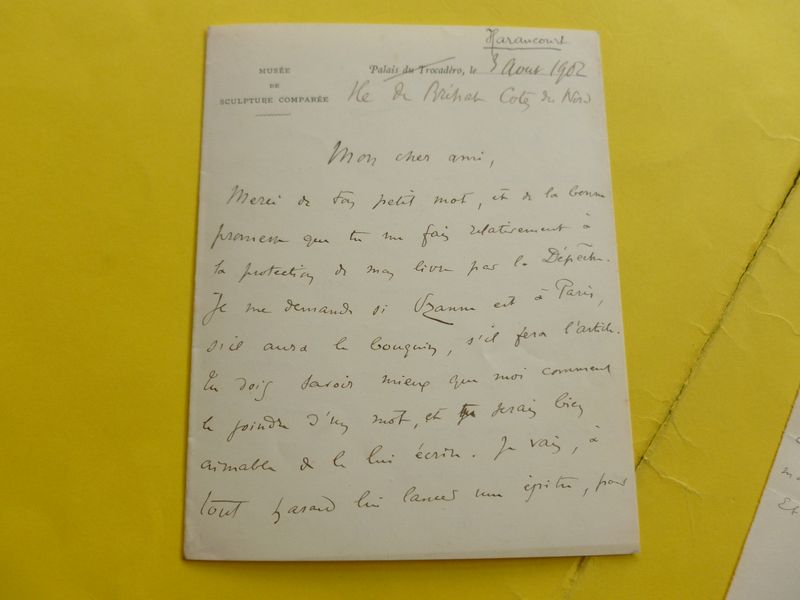 Harancourt
MUSÉE
DE
SCULPTURE COMPARÉE
Palais du Trocadéro, le 3 Aout 1902
Ile de Bréhat Cotes du Nord
Mon cher ami,
Merci de ton petit mot, et de la bonne
promesse que tu me fais relativement à
la protection de mon livre par la Dépêche.
Je me demande si Uzanne est à Paris,
s'il aura le bouquin, s'il fera l'article.
Tu dois savoir mieux que moi comment
le joindre d'un mot, et tu serais bien
aimable de le lui écrire. Je vais, à
tout hasard lui lancer une épitre, pour